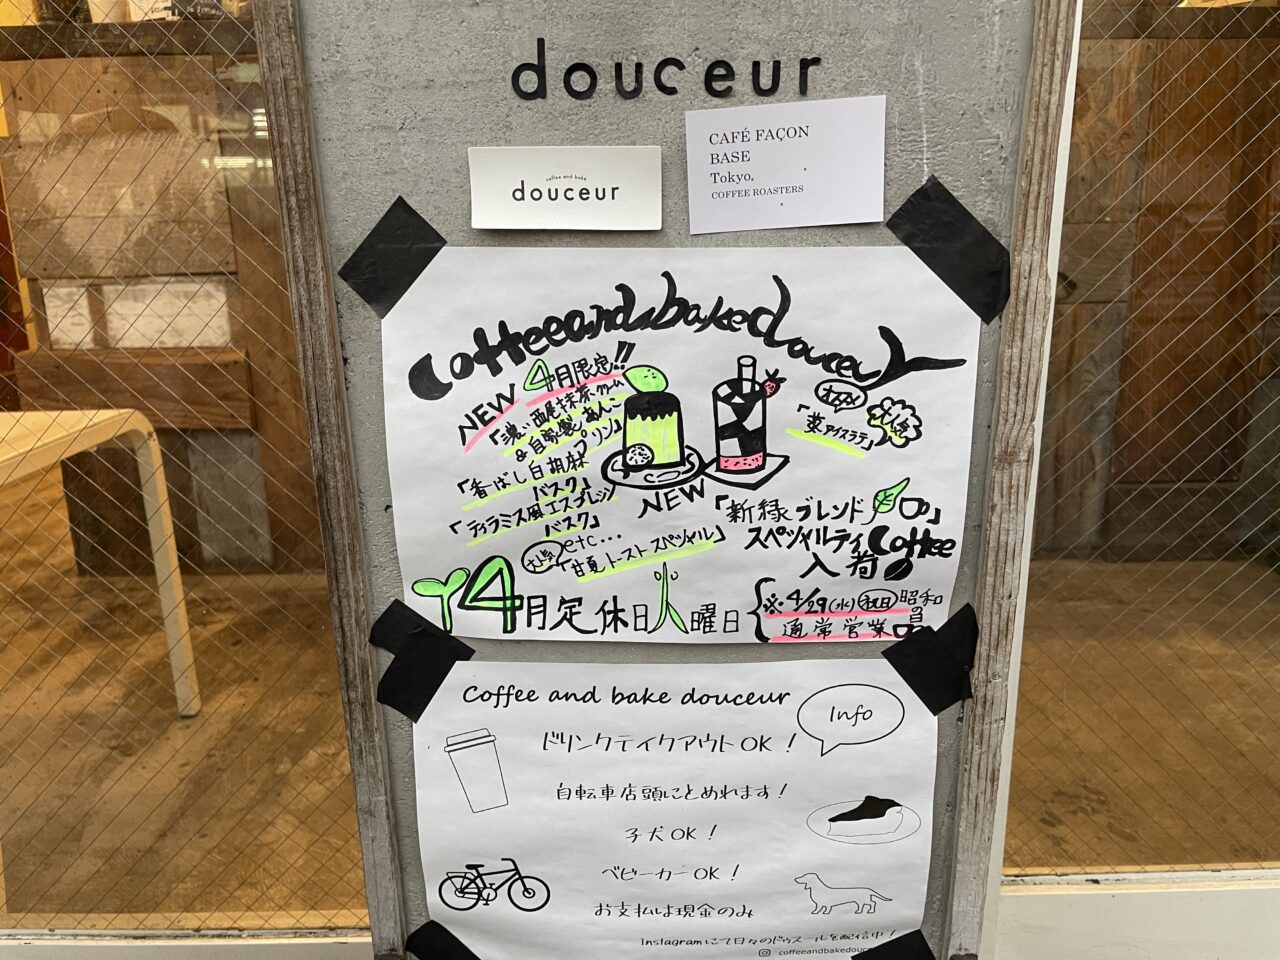 douceur
coffee and bake
douceur
CAFÉ FAÇON
BASE
Tokyo.
COFFEE ROASTERS
Coffee and bake douceur
NEW 4月限定!!
「濃い西尾抹茶クリーム
&自家製あんこ
プリン」
「香ばし白胡麻
バスク」
「ティラミス風エスプレッソ
バスク」
etc...
大人気
「甘夏トーストスペシャル」
NEW
オススメ
大人気
「苺アイスラテ」
「新緑ブレンド」
スペシャルティ Coffee
入荷
4月定休日 火曜日
※4/29(水)祝日 昭和の日
通常営業
Coffee and bake douceur
Info
ドリンクテイクアウトOK！
自転車店頭にとめれます！
子犬OK！
ベビーカーOK！
お支払は現金のみ
Instagramにて日々のドゥスールを配信中！
coffeeandbakedouc